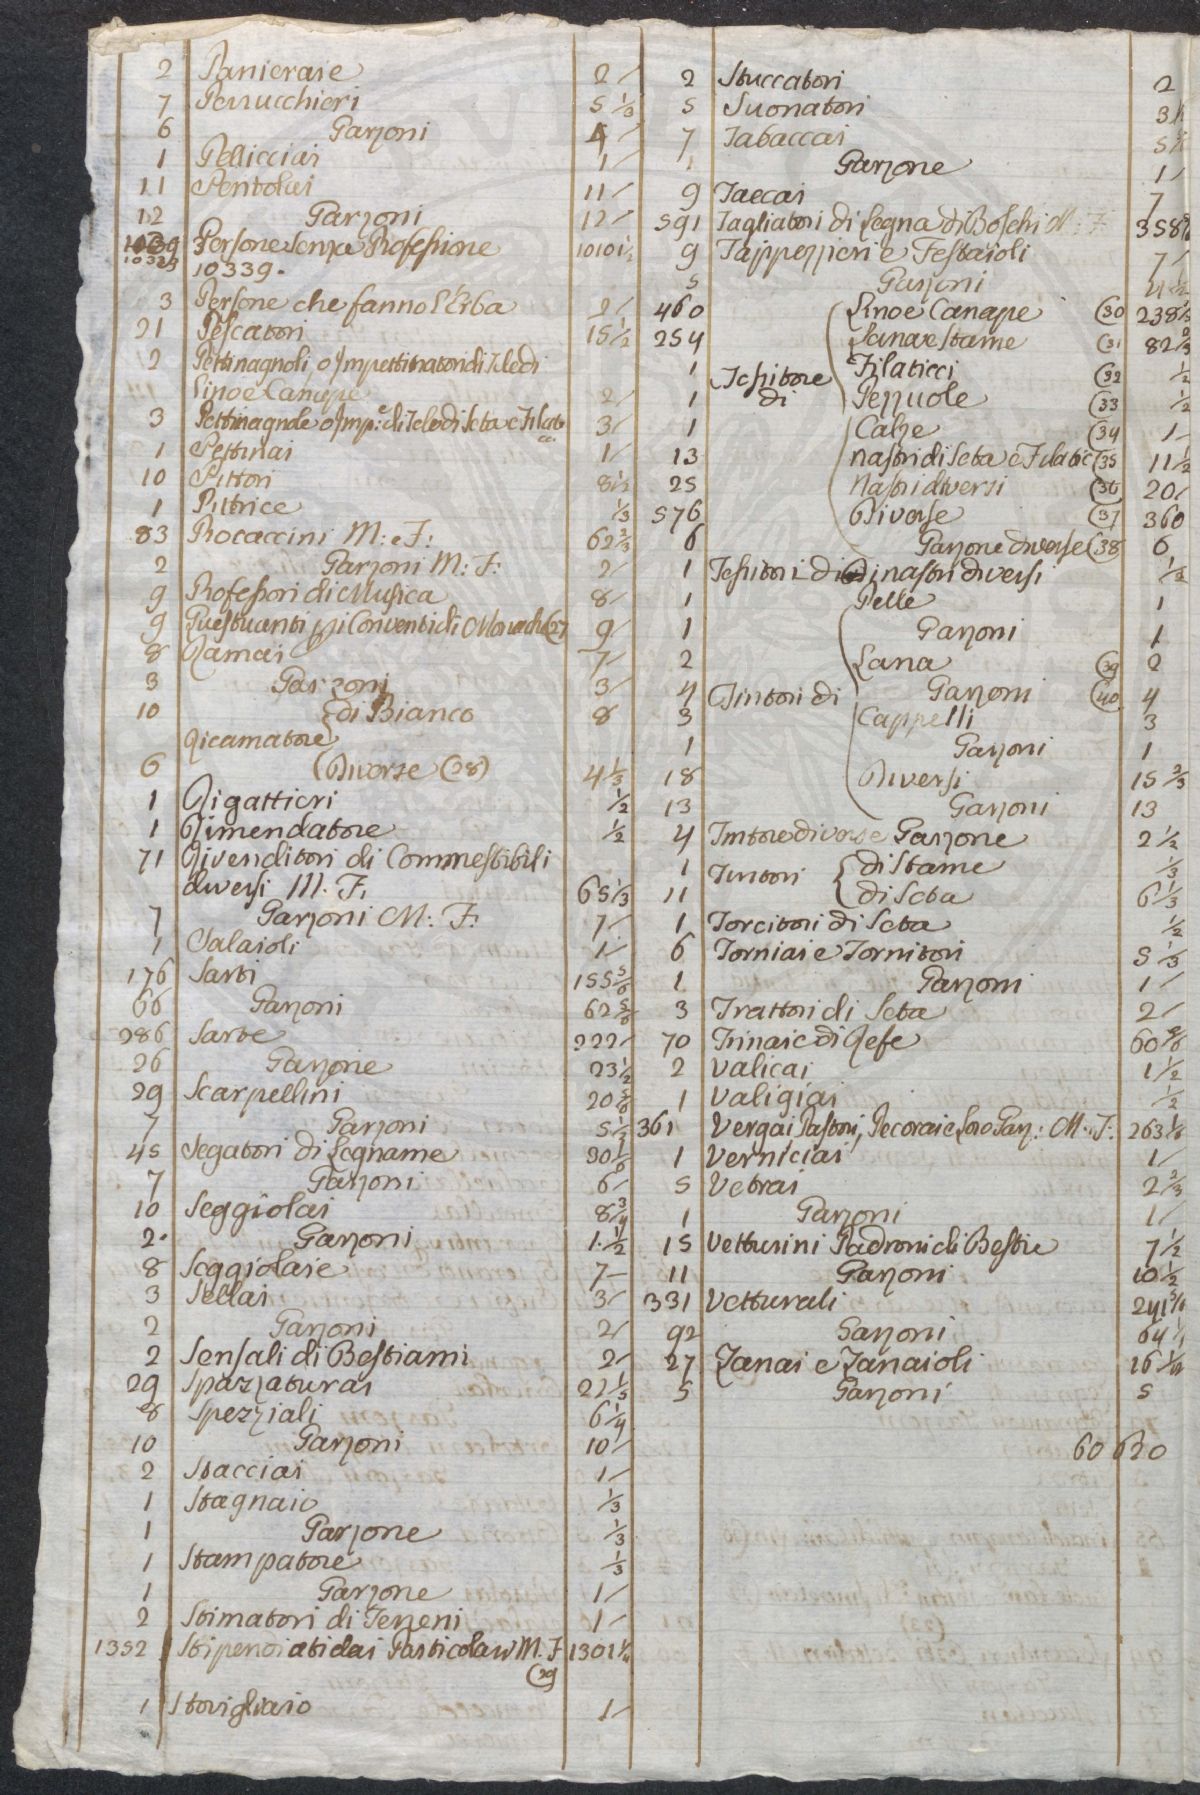 2 Panieraie 2/
7 Perrucchieri 5 1/3
6 Garzoni 4/
1 Pellicciai 1/
11 Pentolai 11/
12 Garzoni 12/
Persone senza Professione 10101 1/2
10339.
3 Persone che fanno l'Erba 2/
21 Pescatori 15 1/2
2 Pettinagnoli o Impettinatori di Tele di
Lino e Canape 2/
3 Pettinagnole o Imp.e di Tele di Seta e Filat. 3/
1 Pettinai 1/
10 Pittori 8 1/2
1 Pittrice 1/3
83 Procaccini M: e F: 62 2/3
2 Garzoni M: F: 2/
9 Professori di Musica 8/
9 Questuanti pi Conventi di Monache (27 9/
8 Ramai 7/
3 Garzoni 3/
10 di Bianco 8
Ricamatore
6 Diverse (28) 4 1/3
1 Rigattieri 1/2
1 Rimendatore 1/2
71 Rivenditori di Commestibili
diversi M. F. 65 1/3
7 Garzoni M: F: 7/
1 Salaioli 1/
176 Sarti 155 5/6
66 Garzoni 62 5/6
286 Sarte 222/
26 Garzone 23 1/2
29 Scarpellini 20 5/6
7 Garzoni 5 1/2
45 Segatori di Legname 30 1/6
7 Garzoni 6/
10 Seggiolai 8 3/4
2. Garzoni 1. 1/2
8 Seggiolaie 7-
3 Sellai 3/
2 Garzoni 2/
2 Sensali di Bestiami 2/
29 Spazzaturai 22 1/3
8 Speziali 6 1/4
10 Garzoni 10/
2 Stacciai 1/
1 Stagnaio 1/3
1 Garzone 1/3
1 Stampatore 1/3
1 Garzone 1/
2 Stimatori di Terreni 1/
1352 Stipendiati dai Particolari M. F. 1301 1/4
(29
1 Stovigliaio 1/
2 Stuccatori 2
5 Suonatori 3
7 Tabaccai 5
1 Garzone 1/
9 Taccai 7
591 Tagliatori di Legna di Boschi M: F 358
9 Tappezzieri e Festaioli 7/
5 Garzoni 4 1/2
460 Lino e Canape (30 238 1/3
254 Lana e Stame (31 82 2/3
1 Filaticci (32 1/2
Tessitore
di
1 Pezzuole (33 1/2
1 Calze (34 1/
13 Nastri di Seta e Filatic (35 11 1/2
25 Nastri diversi (36 20/
576 Diverse (37 360
6 Garzone diverse (38 6
1 Tessitori di nastri diversi 1/2
1 Pelle 1
1 Garzoni 1
2 Lana (39 2
4 Tintori di Garzoni (40 4
3 Cappelli 3
1 Garzoni 1
18 Diversi 15 2/3
13 Garzoni 13
4 Tintore diverse Garzone 2 1/2
1 Tintori di Stame 1/3
11 di Seta 6 1/3
1 Torcitori di Seta 1/2
6 Torniai e Tornitori 5 1/3
1 Garzoni 1/
3 Trattori di Seta 2/
70 Trinaie di Refe 60 5/6
2 Valicai 1 1/2
1 Valigiai 1/2
361 Vergai Pastori, Pecoraie loro Garz: M. F: 263 1/6
1 Verniciai 1/
5 Vetrai 2 2/3
1 Garzoni 1/
15 Vetturini Padroni di Bestie 7 1/2
11 Garzoni 10 1/2
331 Vetturali 241 5/6
92 Garzoni 64
27 Zanai e Zanaioli 16
5 Garzoni 5
60 630